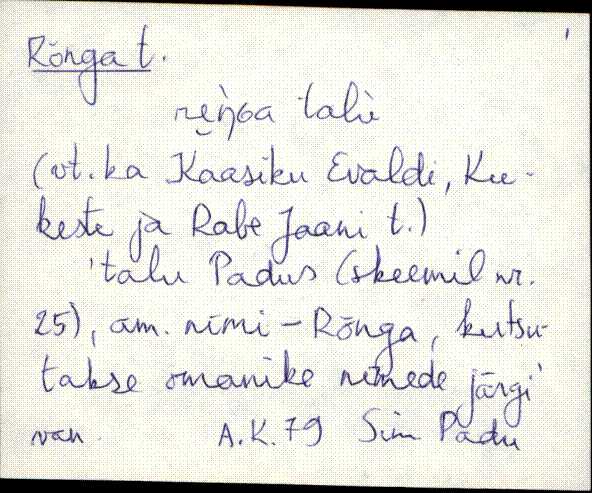 Rõnga t.
talu
(vt. ka Kaasiku Evaldi, Ku-
keste ja Rabe Jaani t.)
'talu Padus (skeemil nr.
25), am. nimi - Rõnga, kutsu-
takse omanike nimede järgi'
van A.K. 79 Sim Padu